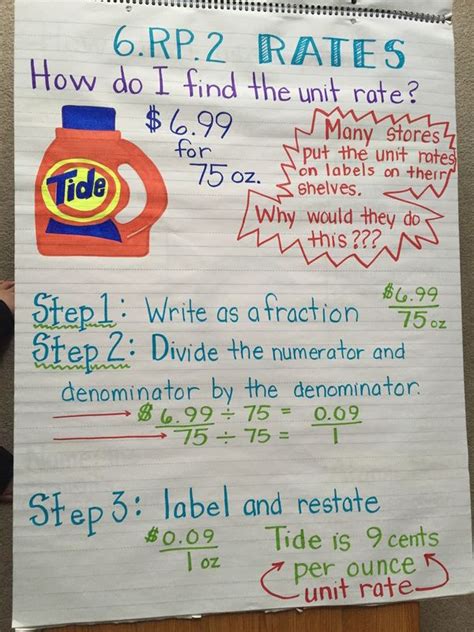 6.RP.2 RATES
How do I find the unit rate?
$6.99
for
75 oz.
Tide
Many stores
put the unit rates
on labels on their
shelves.
Why would they do
this???
Step 1: Write as a fraction $6.99
75 oz
Step 2: Divide the numerator and
denominator by the denominator.
$6.99 ÷ 75 = 0.09
75 ÷ 75 = 1
Step 3: label and restate
$0.09
1 oz
Tide is 9 cents
per ounce
unit rate